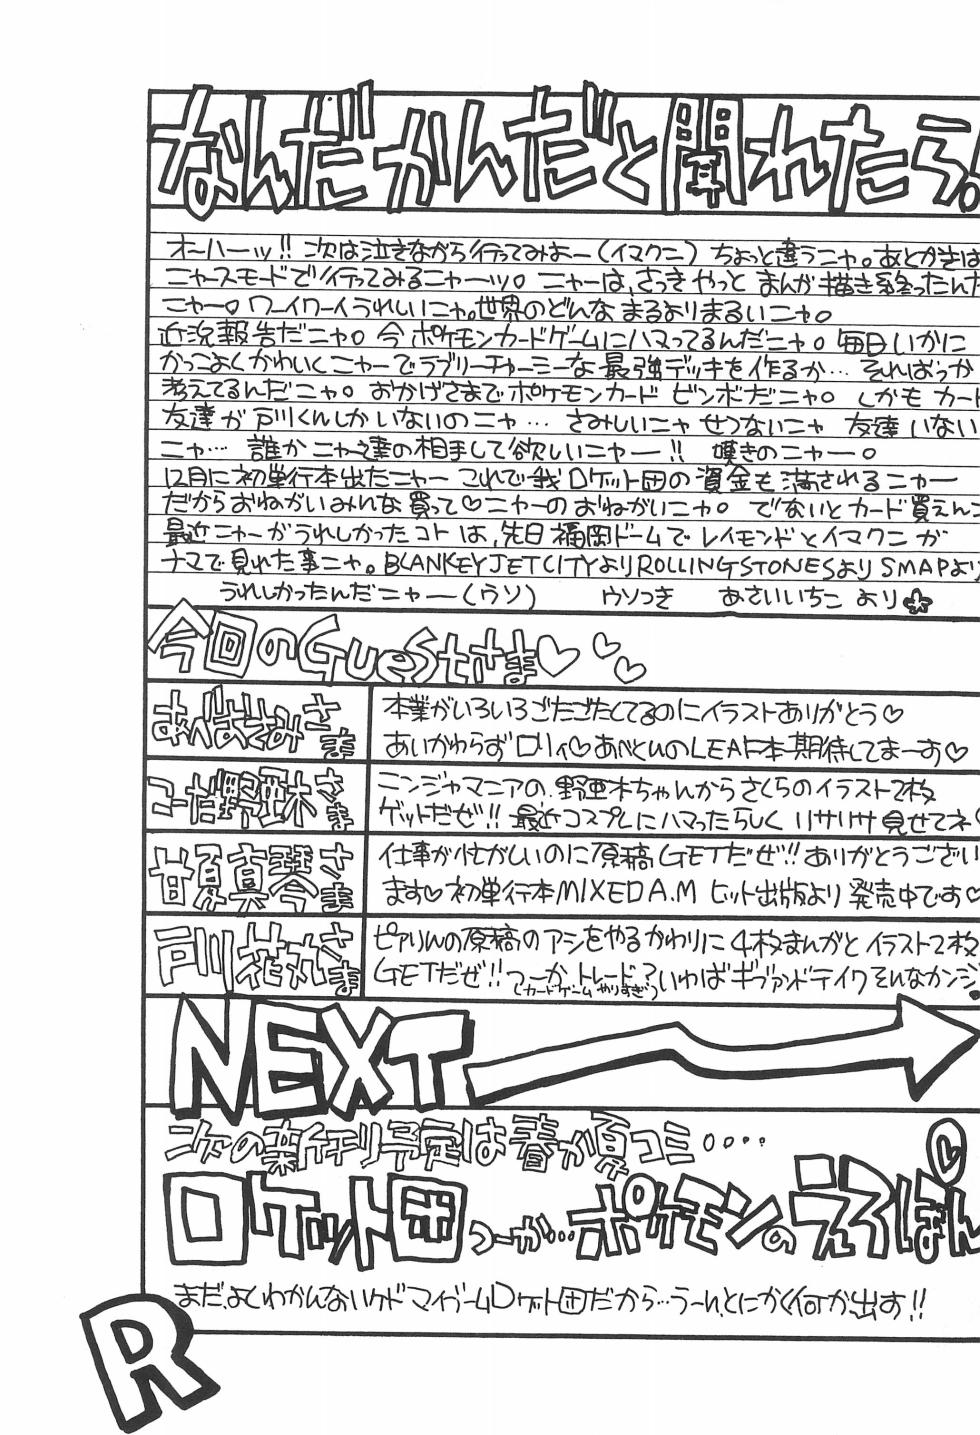 なんだかんだと聞れたら!
オーハーッ!! 次は泣きながら行ってみよー(イマクニ) ちょっと違うニャ。あとがきは
ニャースモードで行ってみるニャーッ。ニャーは、さっき やっと まんが描き終ったんだ
ニャー。ワーイワーイうれしいニャ。世界のどんな まるよりまるいニャ。
近況報告だニャ。今 ポケモンカードゲームにハマってるんだニャ。毎日いかに
かっこよくかわいくニャーでラブリーチャーミーな 最強デッキを作るか… そればっか
考えてるんだニャ。おかげさまでポケモンカード ビンボだニャ。しかも カード
友達が戸川くんしかいないのニャ… さみしいニャ せつないニャ 友達 いない
ニャ… 誰か ニャー達の相手して欲しいニャー!! 嘆きのニャー。
12月に初単行本出たニャー これで我ロケット団の資金も満されるニャー
だからおねがいみんな買って♡ニャーのおねがいニャ。でないとカード買えん
最近ニャーがうれしかったコトは、先日福岡ドームで レイモンドとイマクニが
ナマで見れた事ニャ。BLANKEYJETCITYよりROLLINGSTONESよりSMAPより
うれしかったんだニャー(ウソ) ウソつき あさいいちこ より
今回のGuestさま♡♡♡
あべまさみさま
本業がいろいろごたごたしてるのにイラストありがとう♡
あいかわらずロリィ♡あべとしいのLEAF本期待してまーす♡
こーだ野亜木さま
ニンジャマニアの、野亜木ちゃんからさくらのイラスト2枚
ゲットだぜ!! 最近コスプレにハマったらしく リサリサ見せてネ♡
甘夏真琴さま
仕事が忙がしいのに原稿GETだぜ!! ありがとうござい
ます♡初単行本MIXED A.M ヒット出版より発売中です♡
戸川花丸さま
ピありんの原稿のアシをやるかわりに 4枚まんがと イラスト2枚
GETだぜ!! つーか、トレード? いわばギブアンドテイク そんなカンジ
(カードゲームやりすぎ)
NEXT
次の新刊予定は春か夏コミ‥‥
ロケット団つーか…ポケモンのえろほん
♡
まだ、よくわかんないケド マイブームロケット団だから…うーんとにかく何か出す!!
R